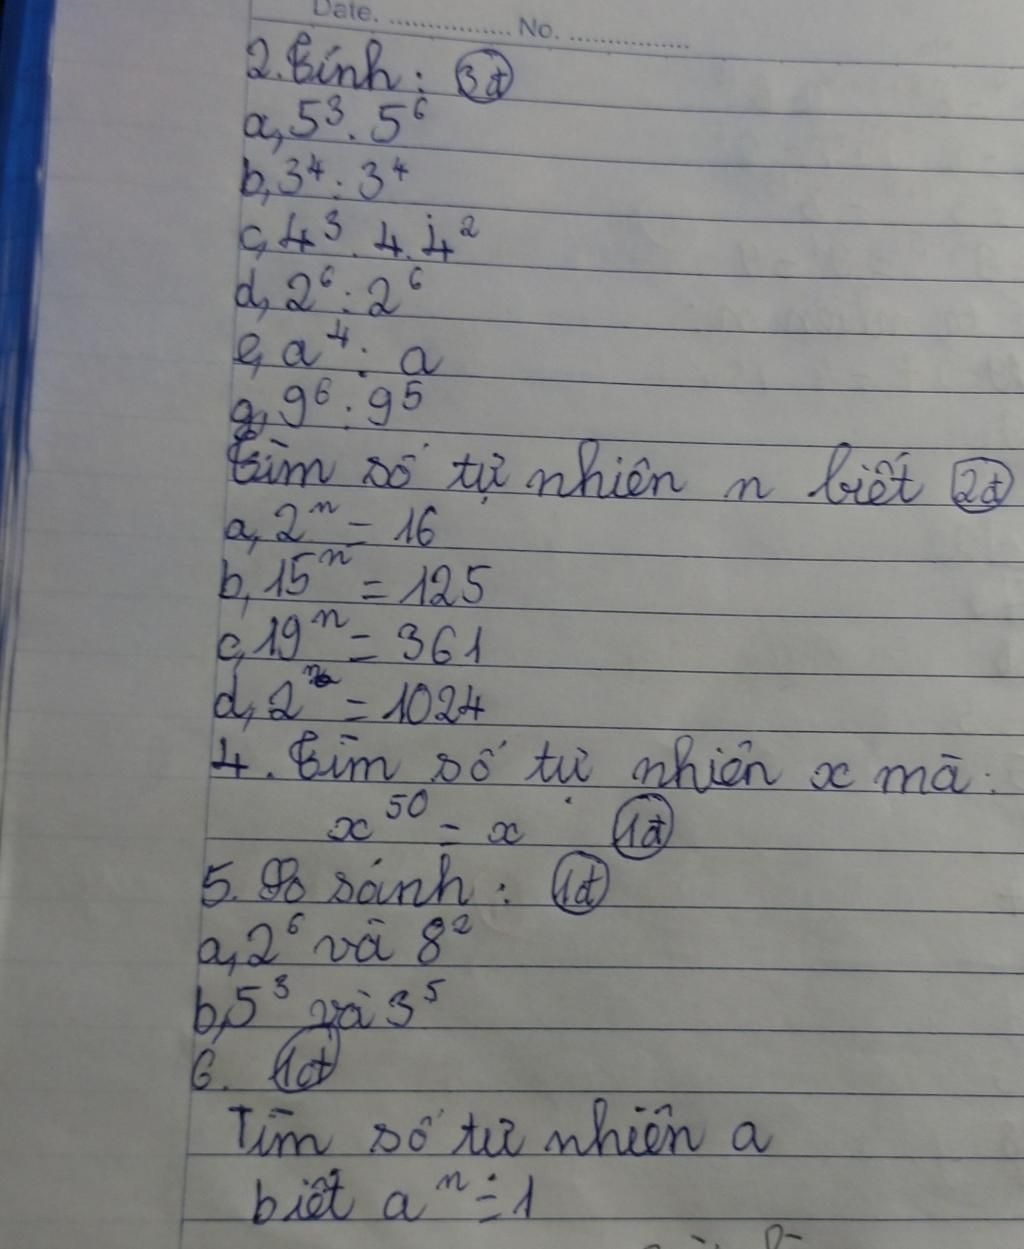 Date. ............... No. ...............
2. Tính: 3đ
a, 5³. 5⁶
b, 3⁴: 3⁴
c, 4³. 4. 4²
d, 2⁶: 2⁶
e, a⁴: a
g, 9⁶: 9⁵
Tìm số tự nhiên n biết 2đ
a, 2ⁿ = 16
b, 15ⁿ = 125
c, 19ⁿ = 361
d, 2ⁿ = 1024
4. Tìm số tự nhiên x mà:
x⁵⁰ = x 1đ
5. So sánh: 1đ
a, 2⁶ và 8²
b, 5³ và 3⁵
6. 1đ
Tìm số tự nhiên a
biết aⁿ = 1